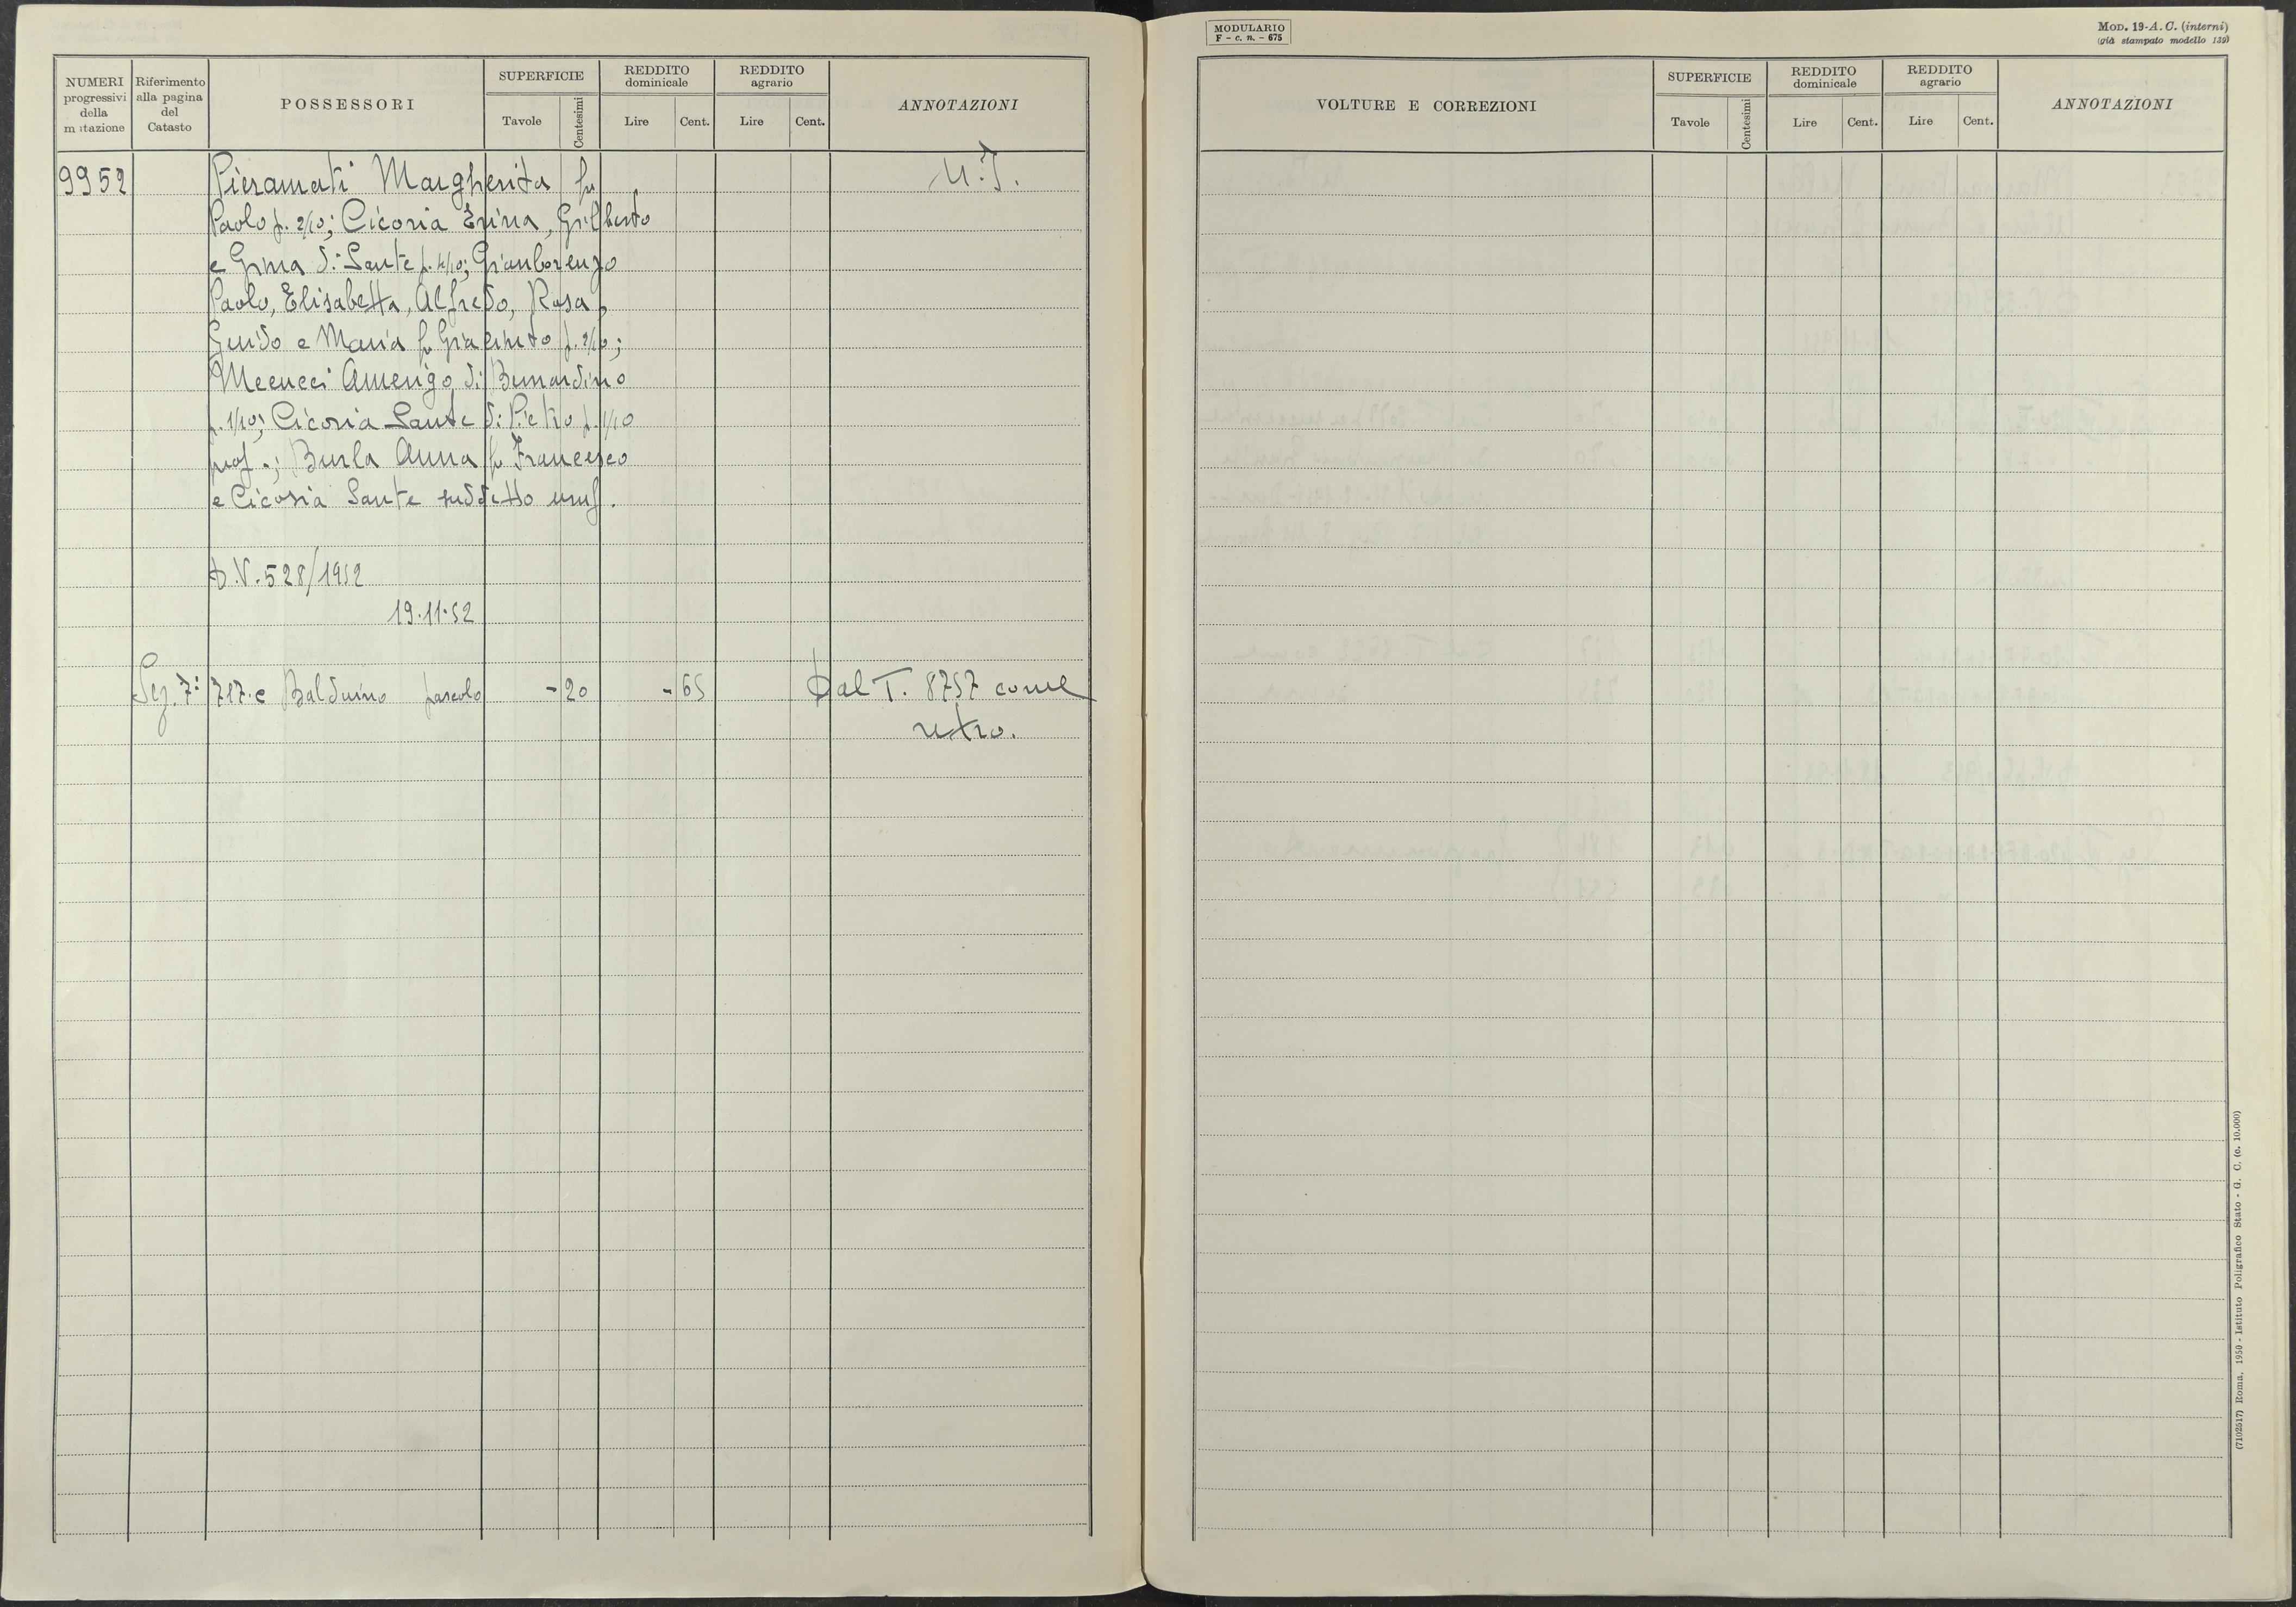 NUMERI
progressivi
della
mutazione
Riferimento
alla pagina
del
Catasto
POSSESSORI
SUPERFICIE
Tavole
Centesimi
REDDITO
dominicale
Lire
Cent.
REDDITO
agrario
Lire
Cent.
ANNOTAZIONI
9952
Pieramati Margherita fu
U.T.
Paolo p. 2/10; Cicoria Erina, Gilberto
e Gina di Sante p. 4/10; Gianlorenzo
Paolo, Elisabetta, Alfredo, Rosa,
Guido e Maria fu Giacinto p. 2/10;
Mecucci Amerigo di Bernardino
p. 1/10; Cicoria Sante di Pietro p. 1/10
prof.; Burla Anna fu Francesco
e Cicoria Sante suddetto usuf.
D.V. 528/1952
19.11.52
Sez. 7ª 717.c Balduino pascolo
- 20
- 65
Dal T. 8757 come
retro.
MODULARIO
F - c. n. - 675
MOD. 19-A. C. (interni)
(già stampato modello 139)
VOLTURE E CORREZIONI
SUPERFICIE
Tavole
Centesimi
REDDITO
dominicale
Lire
Cent.
REDDITO
agrario
Lire
Cent.
ANNOTAZIONI
(7102517) Roma, 1950 - Istituto Poligrafico Stato - G. C. (c. 10.000)